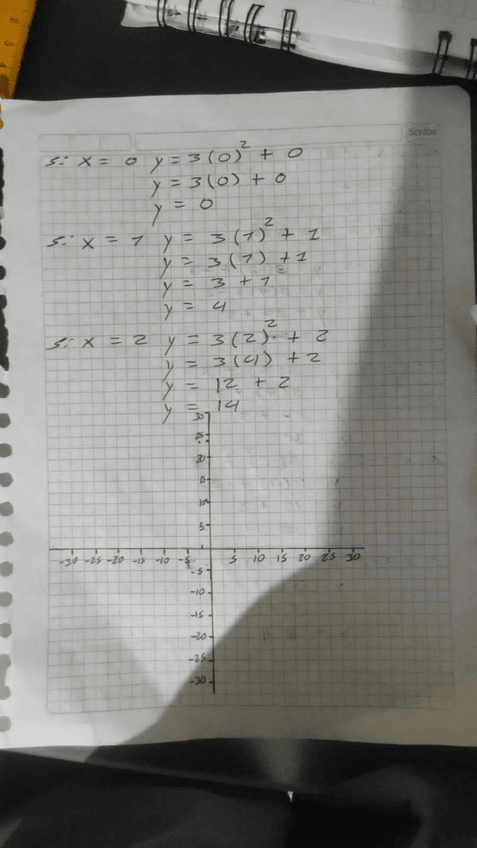 Scribe
Si x = 0 y = 3(0)² + 0
y = 3(0) + 0
y = 0
Si x = 1 y = 3(1)² + 1
y = 3(1) + 1
y = 3 + 1
y = 4
Si x = 2 y = 3(2)² + 2
y = 3(4) + 2
y = 12 + 2
y = 14
30
25
20
15
10
5
-30 -25 -20 -15 -10 -5 5 10 15 20 25 30
-5
-10
-15
-20
-25
-30